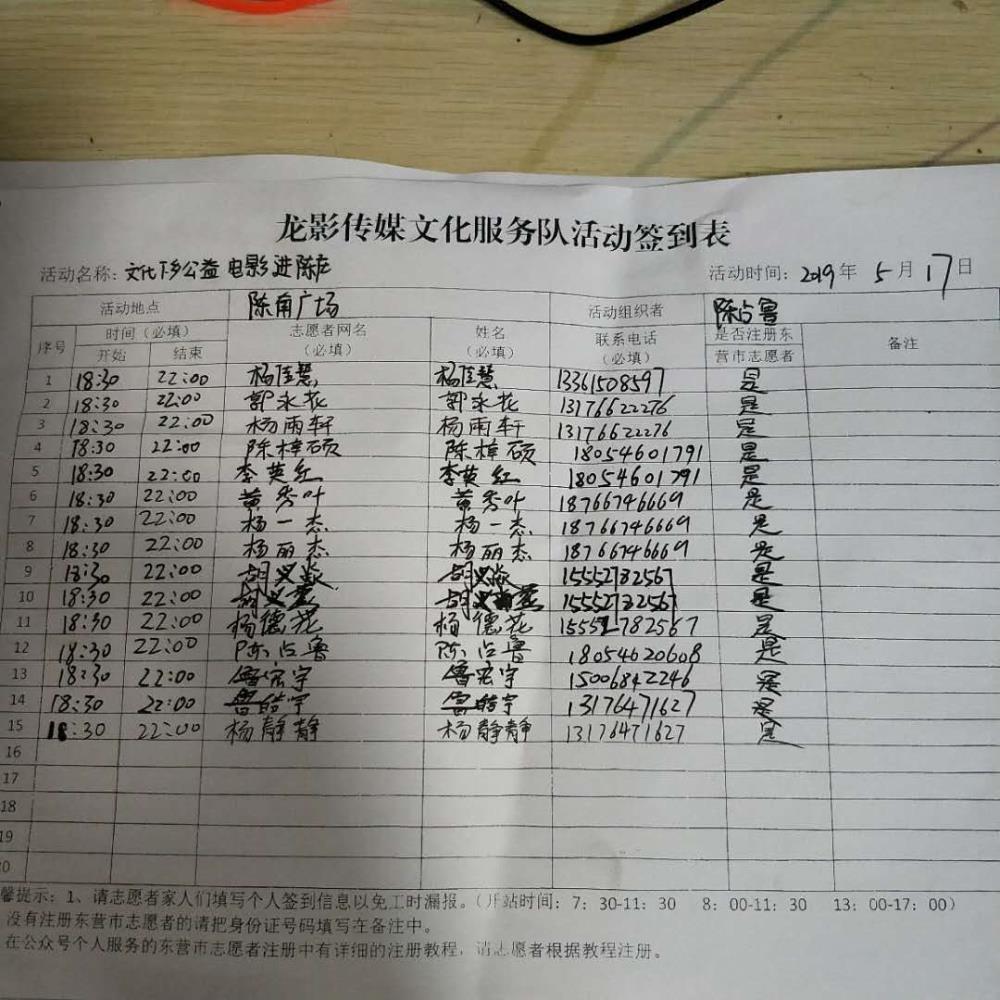 龙影传媒文化服务队活动签到表
活动名称：文化下乡公益电影进陈庄 活动时间：2019年 5月17日
活动地点 陈角广场 活动组织者 陈占鲁
序号 时间（必填） 志愿者网名 姓名 联系电话 是否注册东 备注
开始 结束 （必填） （必填） （必填） 营市志愿者
1 18:30 22:00 杨佳慧 杨佳慧 13361508597 是
2 18:30 22:00 郭永花 郭永花 13176622276 是
3 18:30 22:00 杨雨轩 杨雨轩 13176622276 是
4 18:30 22:00 陈梓硕 陈梓硕 18054601791 是
5 18:30 22:00 李英红 李英红 18054601791 是
6 18:30 22:00 黄秀叶 黄秀叶 18766746669 是
7 18:30 22:00 杨一杰 杨一杰 18766746669 是
8 18:30 22:00 杨丽杰 杨丽杰 18766746669 是
9 18:30 22:00 胡义淼 胡义淼 15552782567 是
10 18:30 22:00 15552782567 是
11 18:30 22:00 杨德花 杨德花 15552782567 是
12 18:30 22:00 陈占鲁 陈占鲁 18054620608 是
13 18:30 22:00 鲁宏宇 鲁宏宇 15006842246 是
14 18:30 22:00 鲁皓宇 鲁皓宇 13176471627 是
15 18:30 22:00 杨静静 杨静静 13176471627 是
16
17
18
19
0
馨提示：1、请志愿者家人们填写个人签到信息以免工时漏报。（开站时间：7：30-11：30 8：00-11：30 13：00-17：00）
没有注册东营市志愿者的请把身份证号码填写在备注中。
在公众号个人服务的东营市志愿者注册中有详细的注册教程，请志愿者根据教程注册。